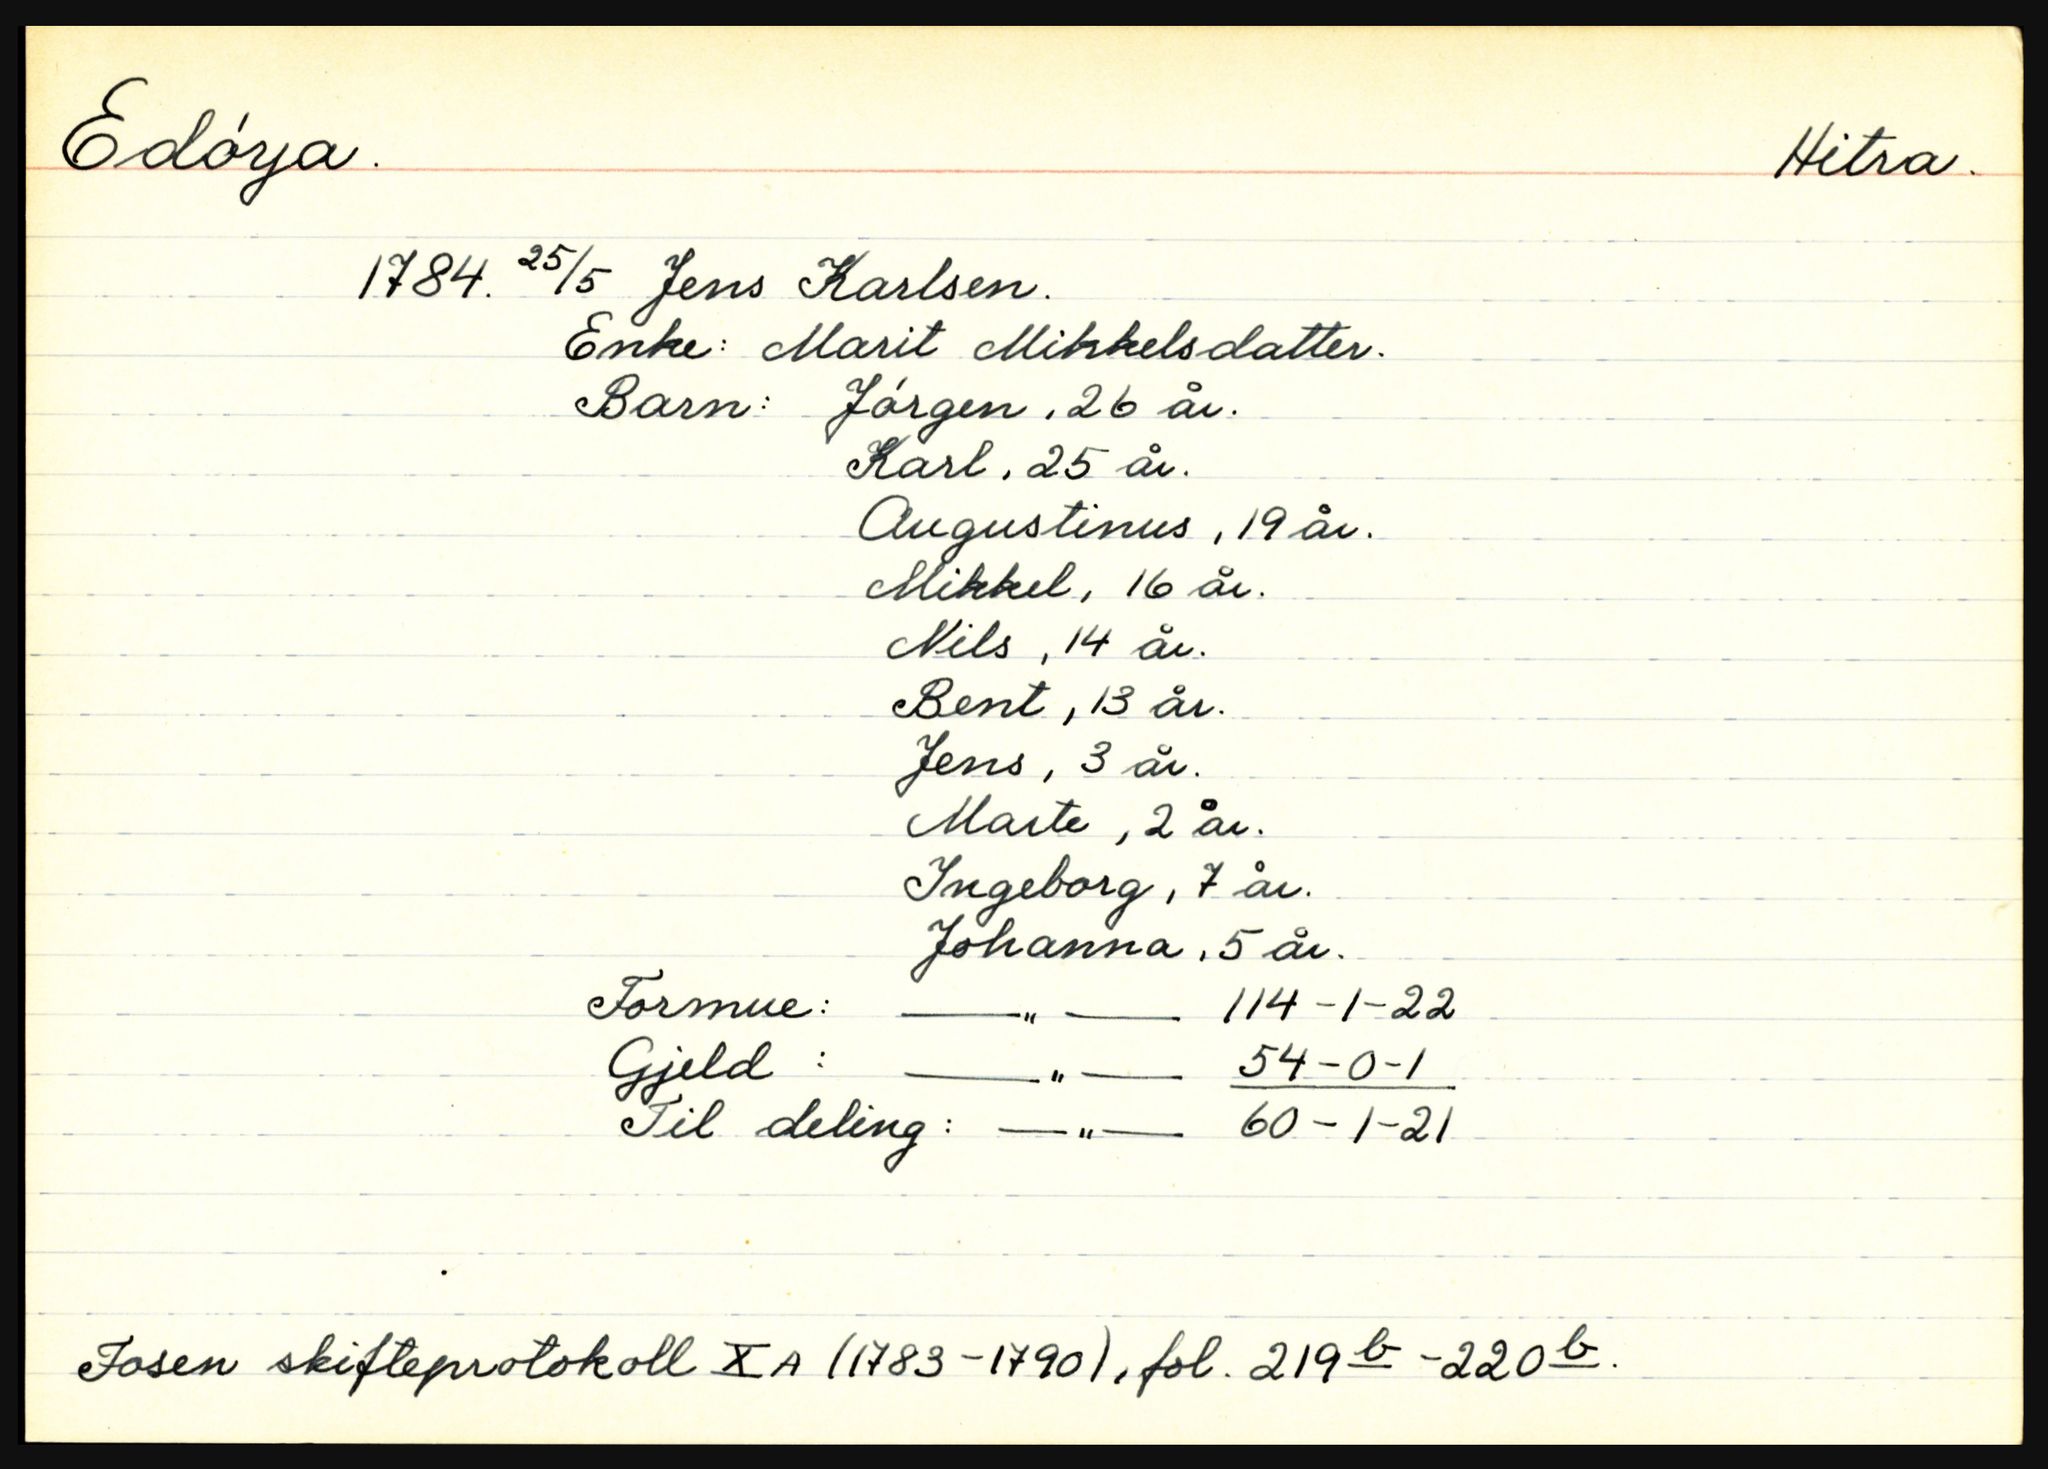 Edóya. Hitra.
1784. 25/5 Jens Karlsen.
Enke: Marit Mikkelsdatter.
Barn: Jórgen, 26 år.
Karl, 25 år.
Augustinus, 19 år.
Mikkel, 16 år.
Nils, 14 år.
Bent, 13 år.
Jens, 3 år.
Marte, 2 år.
Ingeborg, 7 år.
Johanna, 5 år.
Formue: —"— 114-1-22
Gjeld: —"— 54-0-1
Til deling: —"— 60-1-21
Fosen skifteprotokoll X A (1783-1790), fol. 219 b - 220 b.